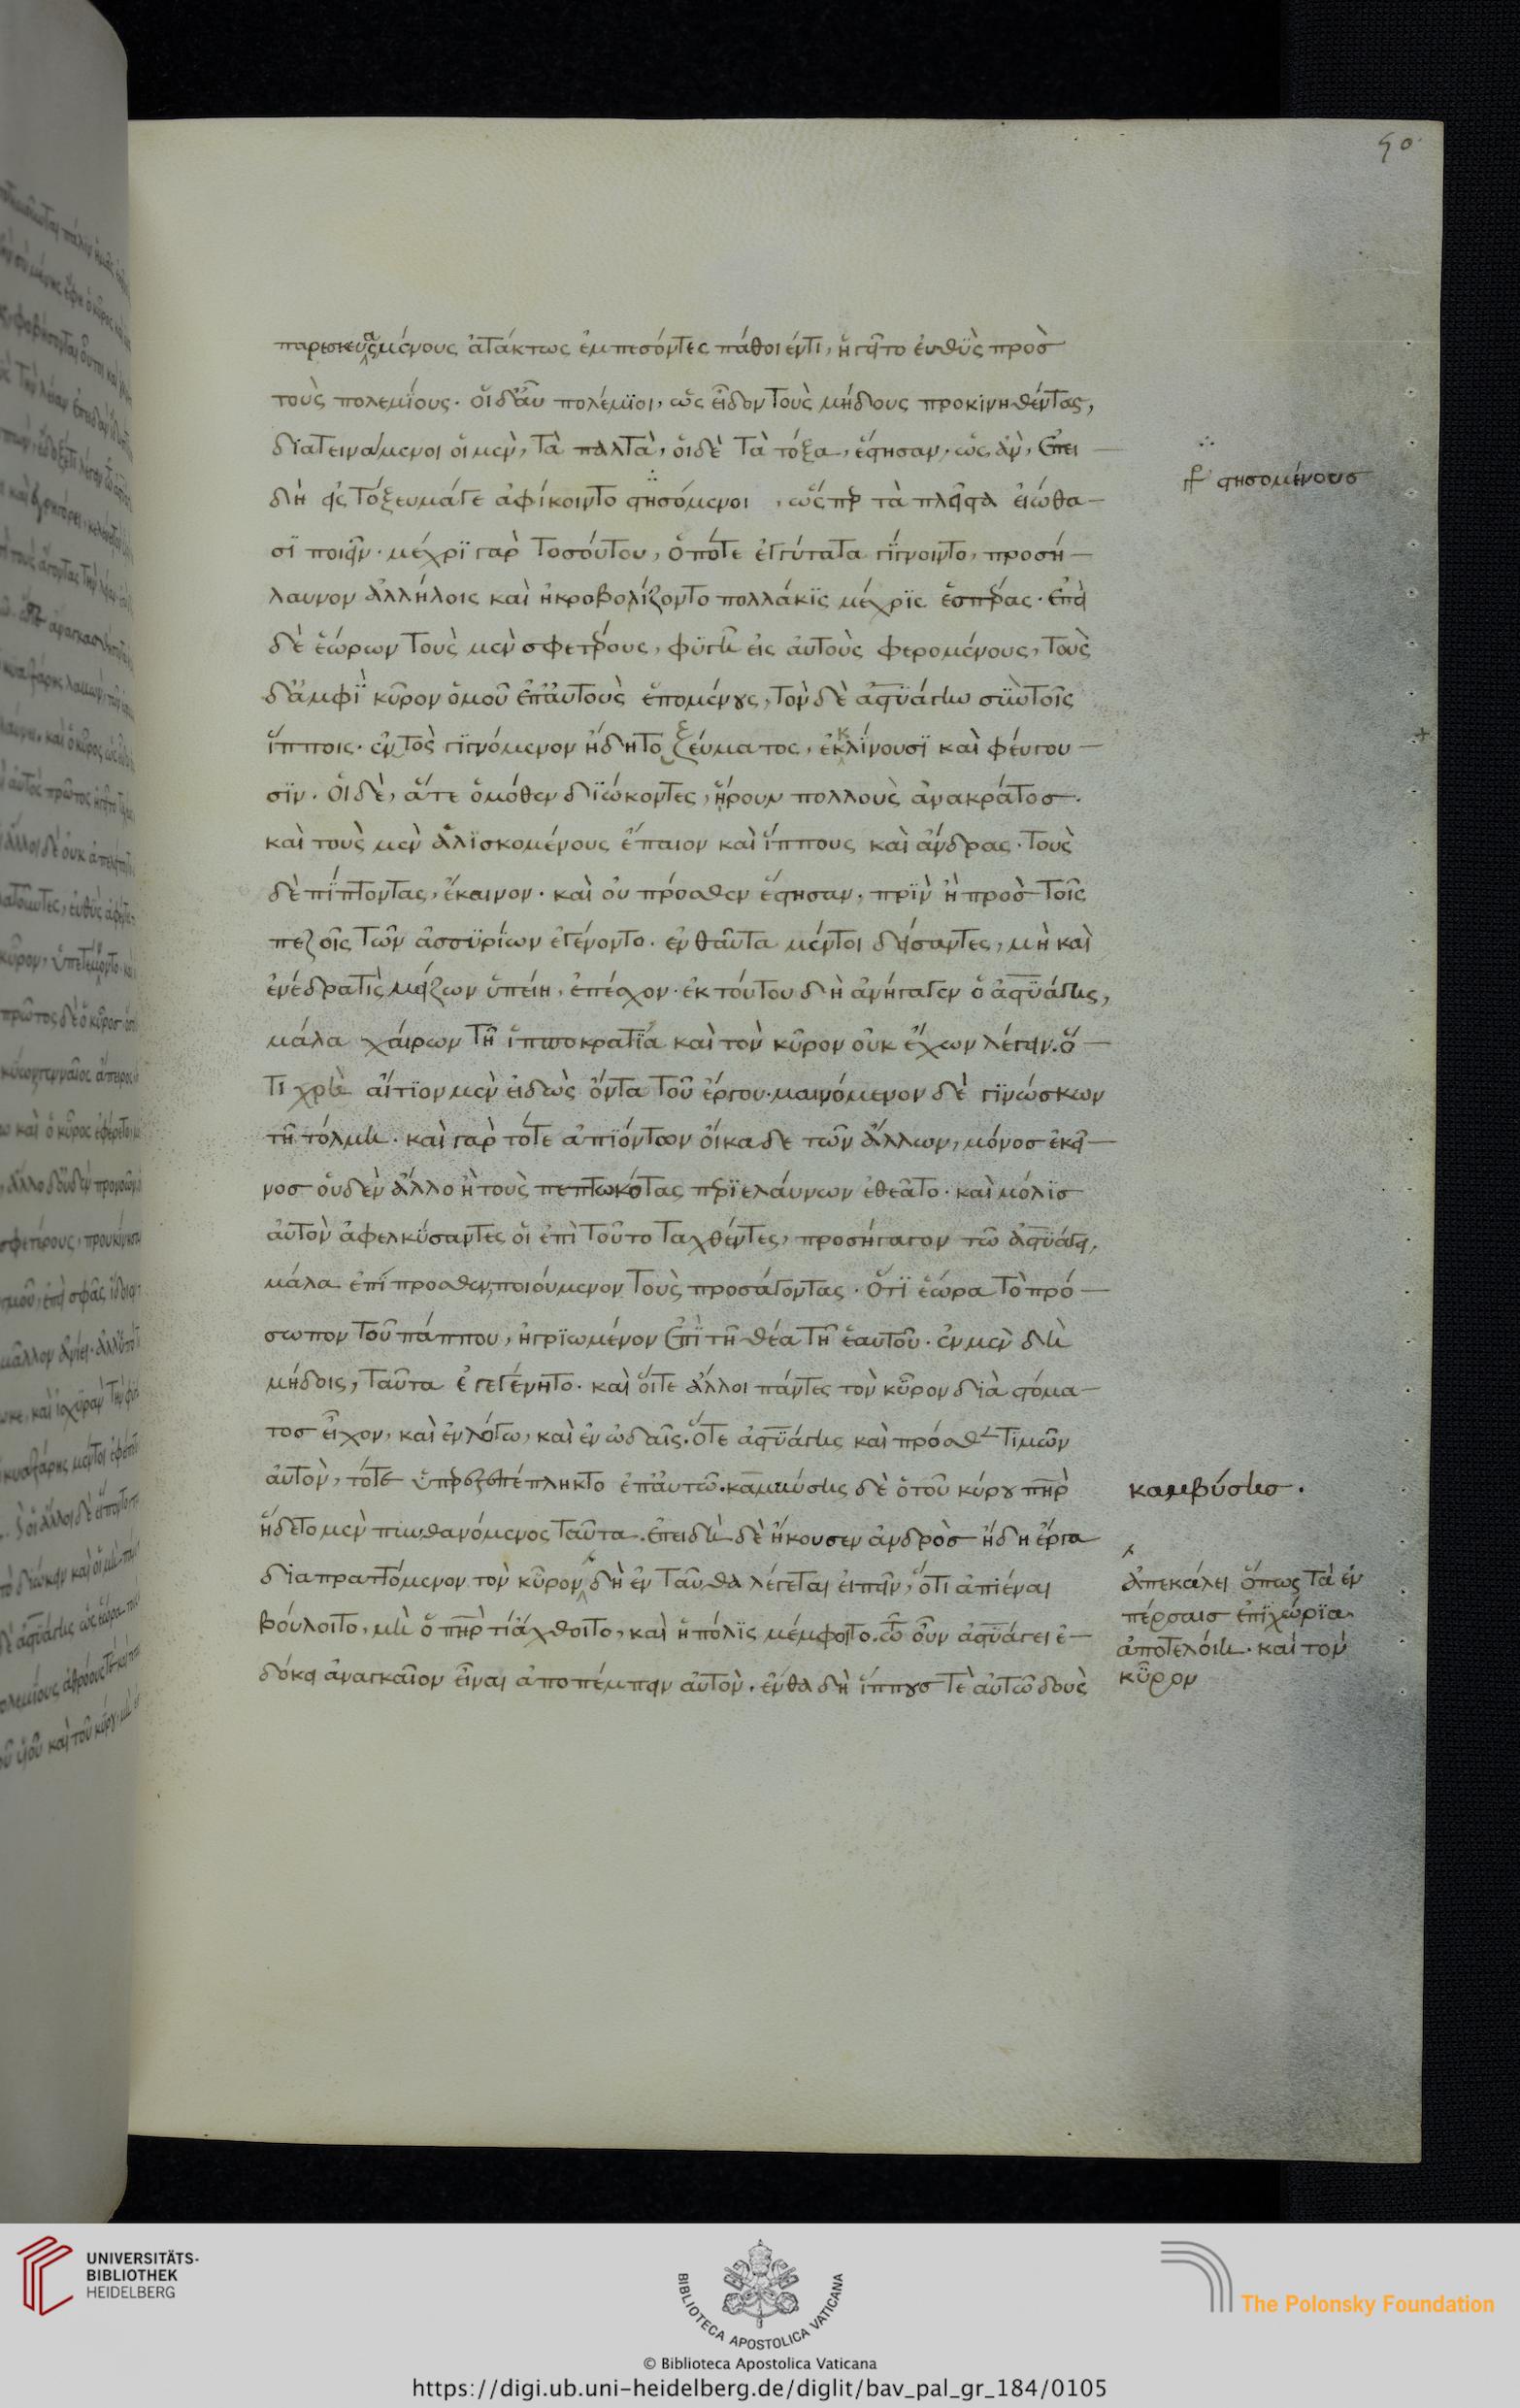 90
παρεσκευασμένους ἀτάκτως ἐμπεσόντες πάθοιέν τι, ἡγεῖτο εὐθὺς πρὸσ
τοὺς πολεμίους. οἱ δ᾽ αὖ πολέμιοι, ὡς εἶδον τοὺς μήδους προκινηθέντας,
διατεινάμενοι οἱ μὲν, τὰ παλτὰ, οἱ δὲ τὰ τόξα, ἕστησαν, ὡς ἂν, ἐπει
δὴ εἰς τόξευμά γε ἀφίκοιντο στησόμενοι, ὥσπερ τὰ πλεῖστα εἰώθα
σι ποιεῖν. μέχρι γὰρ τοσούτου, ὁπότε ἐγγύτατα γίγνοιντο, προσή
λαυνον ἀλλήλοις καὶ ἠκροβολίζοντο πολλάκις μέχρις ἑσπέρας. ἐπεὶ
δὲ ἑώρων τοὺς μὲν σφετέρους, φυγῆ εἰς αὐτοὺς φερομένους, τοὺς
δ᾽ ἀμφὶ κῦρον ὁμοῦ ἐπ᾽ αὐτοὺς ἑπομένους, τὸν δὲ ἀστυάγην σὺν τοῖς
ἵπποις. ἐντὸς γιγνόμενον ἤδη τοξεύματος, ἐκκλίνουσι καὶ φεύγου
σιν. οἱ δὲ, ἅτε ὁμόθεν διώκοντες, ἥρουν πολλοὺς ἀνακράτοσ.
καὶ τοὺς μὲν ἁλισκομένους ἔπαιον καὶ ἵππους καὶ ἄνδρας. τοὺς
δὲ πίπτοντας, ἔκαινον. καὶ οὐ πρόσθεν ἔστησαν, πρὶν ἢ πρὸσ τοῖς
πεζοῖς τῶν ἀσσυρίων ἐγένοντο. ἐνθαῦτα μέντοι δείσαντες, μὴ καὶ
ἐνέδρα τὶς μείζων ὑπείη, ἐπέσχον. ἐκ τούτου δὴ ἀνήγαγεν ὁ ἀστυάγης,
μάλα χαίρων τῆ ἱπποκρατία καὶ τὸν κῦρον οὐκ ἔχων λέγειν. ὅ
τι χρὴ αἴτιον μὲν εἰδὼς ὄντα τοῦ ἔργου. μαινόμενον δὲ γινώσκων
τῆ τόλμη. καὶ γὰρ τότε ἀπιόντων οἴκαδε τῶν ἄλλων, μόνοσ ἐκεῖ
νοσ οὐδὲν ἄλλο ἢ τοὺς πεπτωκότας περιελαύνων ἐθεᾶτο. καὶ μόλισ
αὐτὸν ἀφελκύσαντες οἱ ἐπὶ τοῦτο ταχθέντες, προσήγαγον τῶ ἀστυάγει,
μάλα ἐπίπροσθεν ποιούμενον τοὺς προσάγοντας. ὅτι ἑώρα τὸ πρό
σωπον τοῦ πάππου, ἠγριωμένον ἐπὶ τῆ θέα τῆ ἑαυτοῦ. ἐν μὲν δὴ
μήδοις, ταῦτα ἐγεγένητο. καὶ οἵτε ἄλλοι πάντες τὸν κῦρον διὰ στόμα
τοσ εἶχον, καὶ ἐν λόγω, καὶ ἐν ὠδαῖς. ὅτε ἀστυάγης καὶ πρόσθεν τιμῶν
αὐτὸν, τότε ὑπερεξεπέπληκτο ἐπ᾽ αυτῶ. καμβύσης δὲ ὁ τοῦ κύρου πηρ
ἥδετο μὲν πυνθανόμενος ταῦτα. ἐπειδὴ δὲ ἤκουσεν ἀνδρὸσ ἤδη ἔργα
διαπραττόμενον τὸν κῦρον, δὴ ἐνταῦθα λέγεται εἰπεῖν, ὅτι ἀπιέναι
βούλοιτο, μὴ ὁ πηρ τι ἄχθοιτο, καὶ ἡ πόλις μέμφοιτο. τῶ οὖν ἀστυάγει ἐ
δόκει ἀναγκαῖον εἶναι ἀποπέμπειν αὐτὸν. ἔνθα δὴ ἵππουσ τὲ αὐτῶ δοὺς
στησομένουσ
καμβύσησ.
ἀπεκάλει ὅπως τὰ ἐν
πέρσαισ ἐπιχώρια
ἀποτελοίη. καὶ τὸν
κῦρον
UNIVERSITÄTS-
BIBLIOTHEK
HEIDELBERG
BIBLIOTECA APOSTOLICA VATICANA
The Polonsky Foundation
© Biblioteca Apostolica Vaticana
https://digi.ub.uni-heidelberg.de/diglit/bav_pal_gr_184/0105